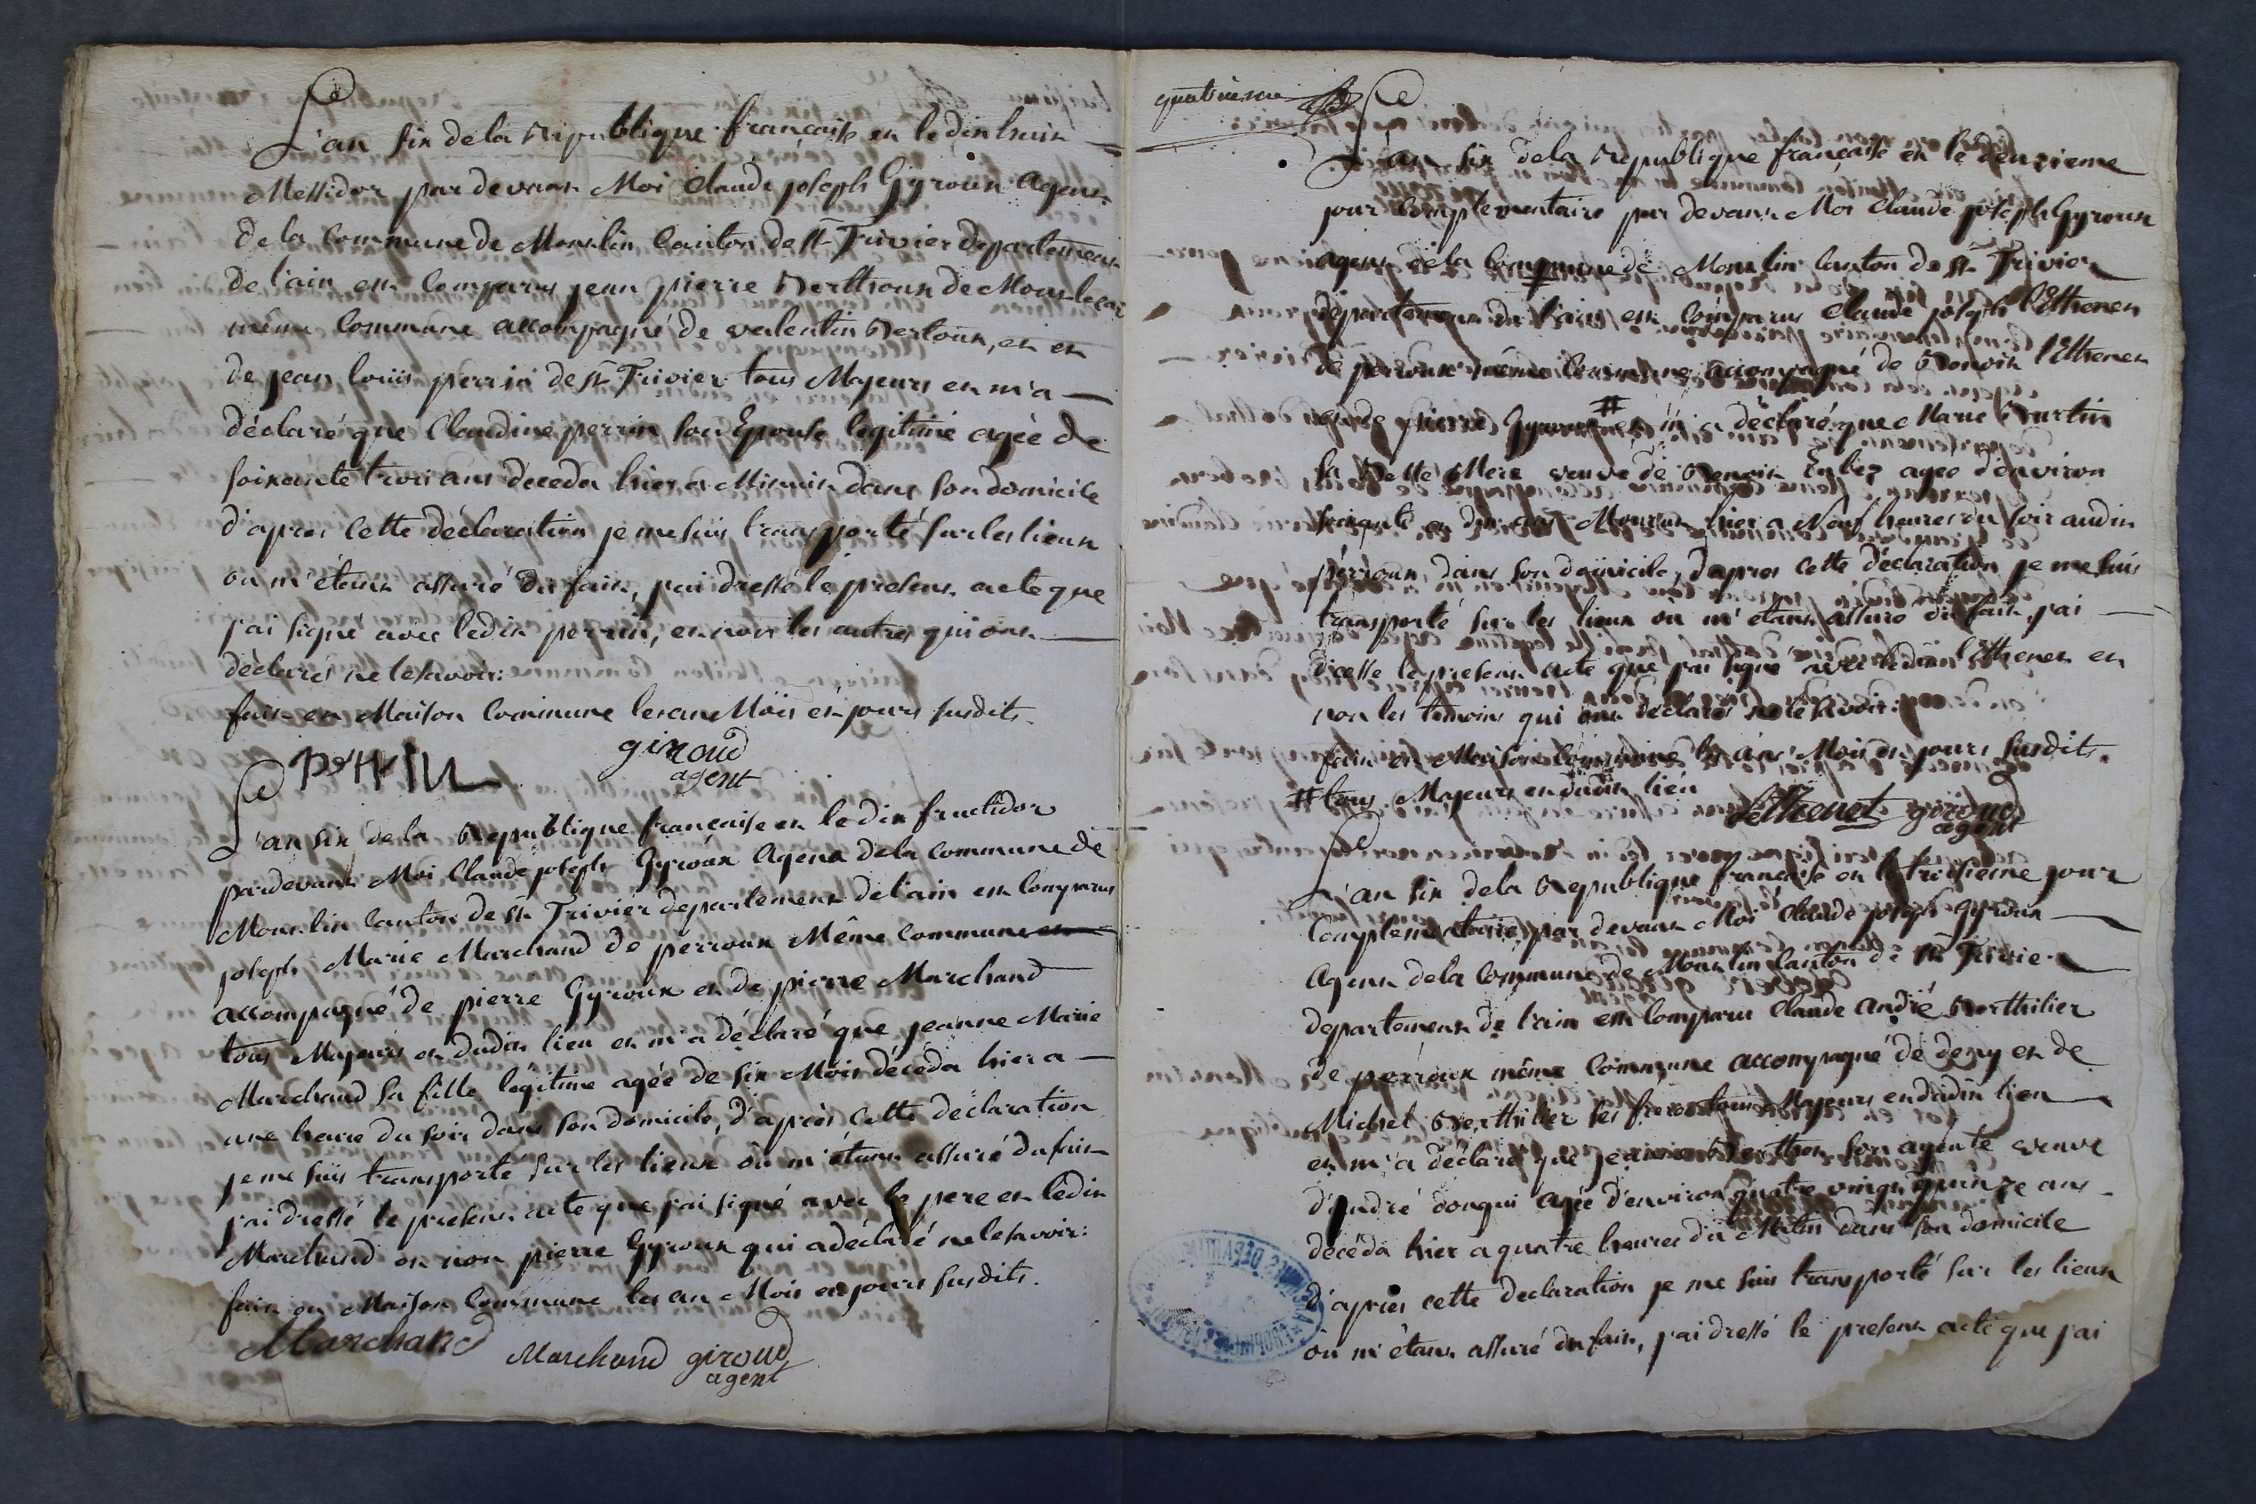 L'an six de la Republique française et le dix huit
Messidor par devant Moi Claude joseph Gyroux Agent
de la Commune de Monslin Canton de St Trivier departement
de l'ain est Comparus jean pierre Berthoux de
même Commune accompagné de valentin et et
de jean loüis perrin de St Trivier tous Majeurs et m'a
déclaré que Claudine perrin son Epouse legitime agée de
soixante trois ans deceda hier a Minuit dans son domicile
d'apres cette déclaration je me suis transporté sur les lieux
ou m'étant assuré du fait, j'ai dressé le present acte que
j'ai signé avec ledit perrin, et non les autres qui ont
déclarés ne le savoir:
fait en Maison Commune les an Mois et jours susdits.
perrin giroud
agent
L'an six de la Republique française et le dix fructidor
pardevant Moi Claude joseph Gyroux Agent de la Commune de
Monslin Canton de St Trivier departement de l'ain est Comparus
joseph Marie Marchand de perroux Même Commune et
accompagné de pierre Gyroux et de pierre Marchand
tous Majeurs et dudit lieu et m'a déclaré que jeanne Marie
Marchand sa fille légitime agée de six Mois décéda hier a
une heure du soir dans son domicile, d'après cette déclaration
je me suis transporté sur les lieux où m'étant assuré du fait
j'ai dressé le present acte que j'ai signé avec le pere et ledit
Marchand et non pierre Gyroux qui a déclaré ne le savoir:
fait en Maison Commune les an Mois et jours susdits.
Marchand Marchand giroud
agent
quatrieme
L'an six de la Republique française et le deuxieme
jour Complementaire par devant Moi Claude joseph Gyroux
agent de la Commune de Monslin Canton de St Trivier
departement de l'ain est Comparus Claude joseph l'Ethenet
de perroux même Commune accompagné de Benoit l'Ethenet
et de pierre Gyroux # et m'a déclaré que Marie Burtin
sa Belle Mere veuve de Benoit agee d'environ
soixante et dix ans Mourut hier a Neuf heures du soir audit
pérroux, dans son domicile, d'apres cette déclaration je me suis
transporté sur les lieux où m'étant assuré du fait j'ai
dressé le present acte que j'ai signé avec ledit l'Ethenet et
non les temoins qui ont déclarés ne le savoir:
fait en Maison Commune les an Mois et jours susdits.
# tous Majeurs et dudit lieu
Lethenet giroud
agent
L'an six de la Republique française et le troisieme jour
Complementaire par devant Moi Claude joseph Gyroux
Agent de la Commune de Monslin Canton de St Trivier
departement de l'ain est Comparus Claude andré Berthilier
de perroux même Commune accompagné de deny et de
Michel Berthilier ses freres tous Majeurs et dudit lieu
et m'a déclaré que Berthet son ayeule veuve
d'André donqui agée d'environ quatre vingt quinze ans
décéda hier a quatre heures du Matin dans son domicile
d'après cette declaration je me suis transporté sur les lieux
où m'étant assuré du fait, j'ai dressé le present acte que j'ai